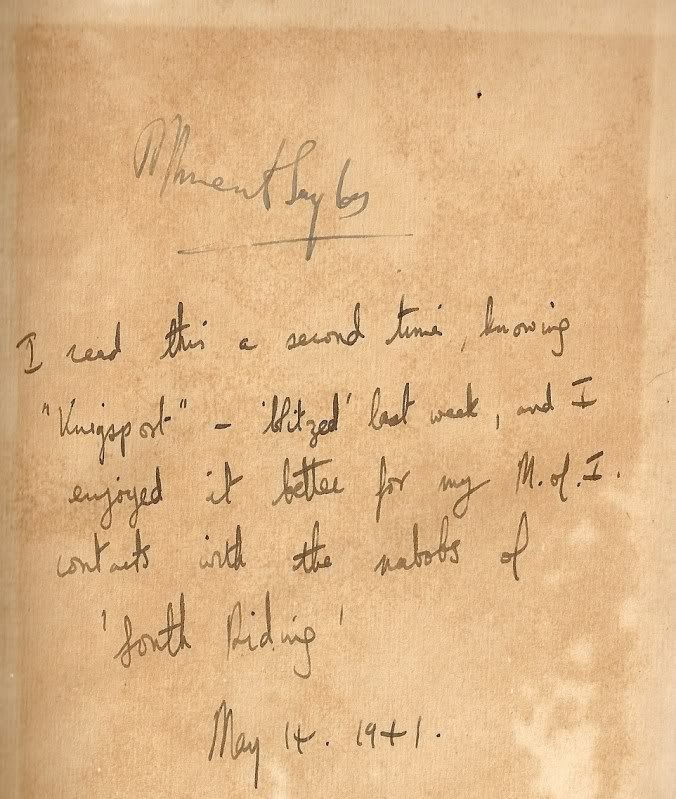 I read this a second time, knowing
"Knigsport" – 'blitzed' last week, and I
enjoyed it better for my M.of.I.
contacts with the nabobs of
'South Riding'
May 14. 1941.